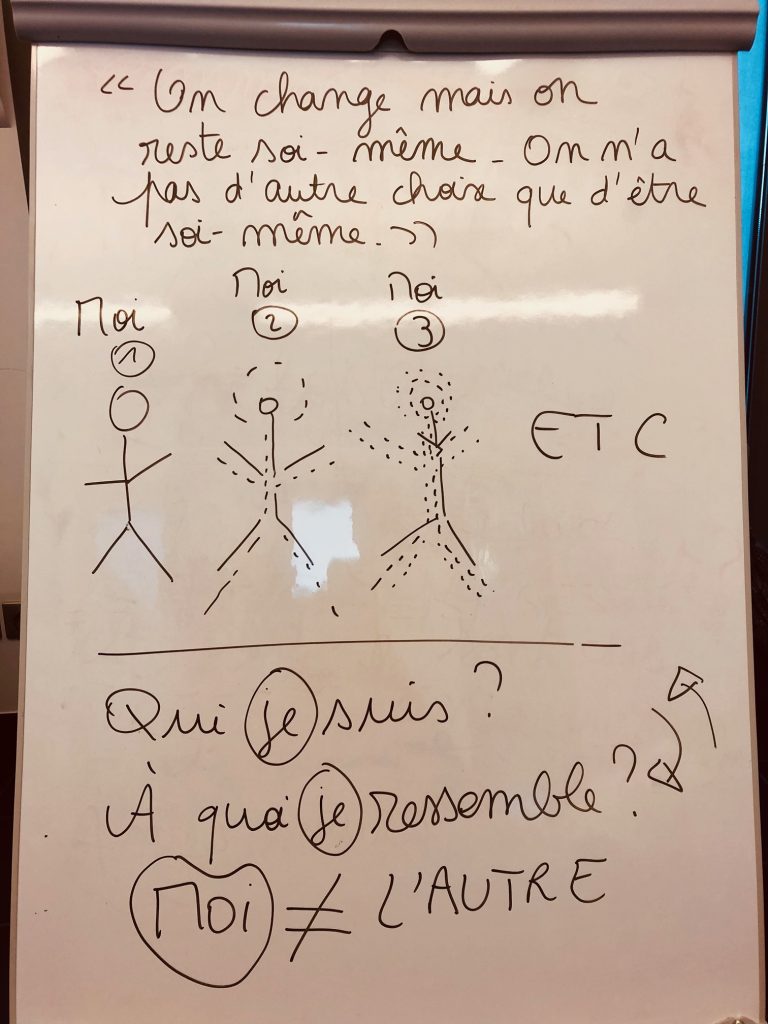 “ On change mais on
reste soi-même - On n'a
pas d'autre choix que d'être
soi-même. ”
Moi Moi Moi
1 2 3
ETC
Qui je suis ?
À quoi je ressemble ?
MOI ≠ L'AUTRE